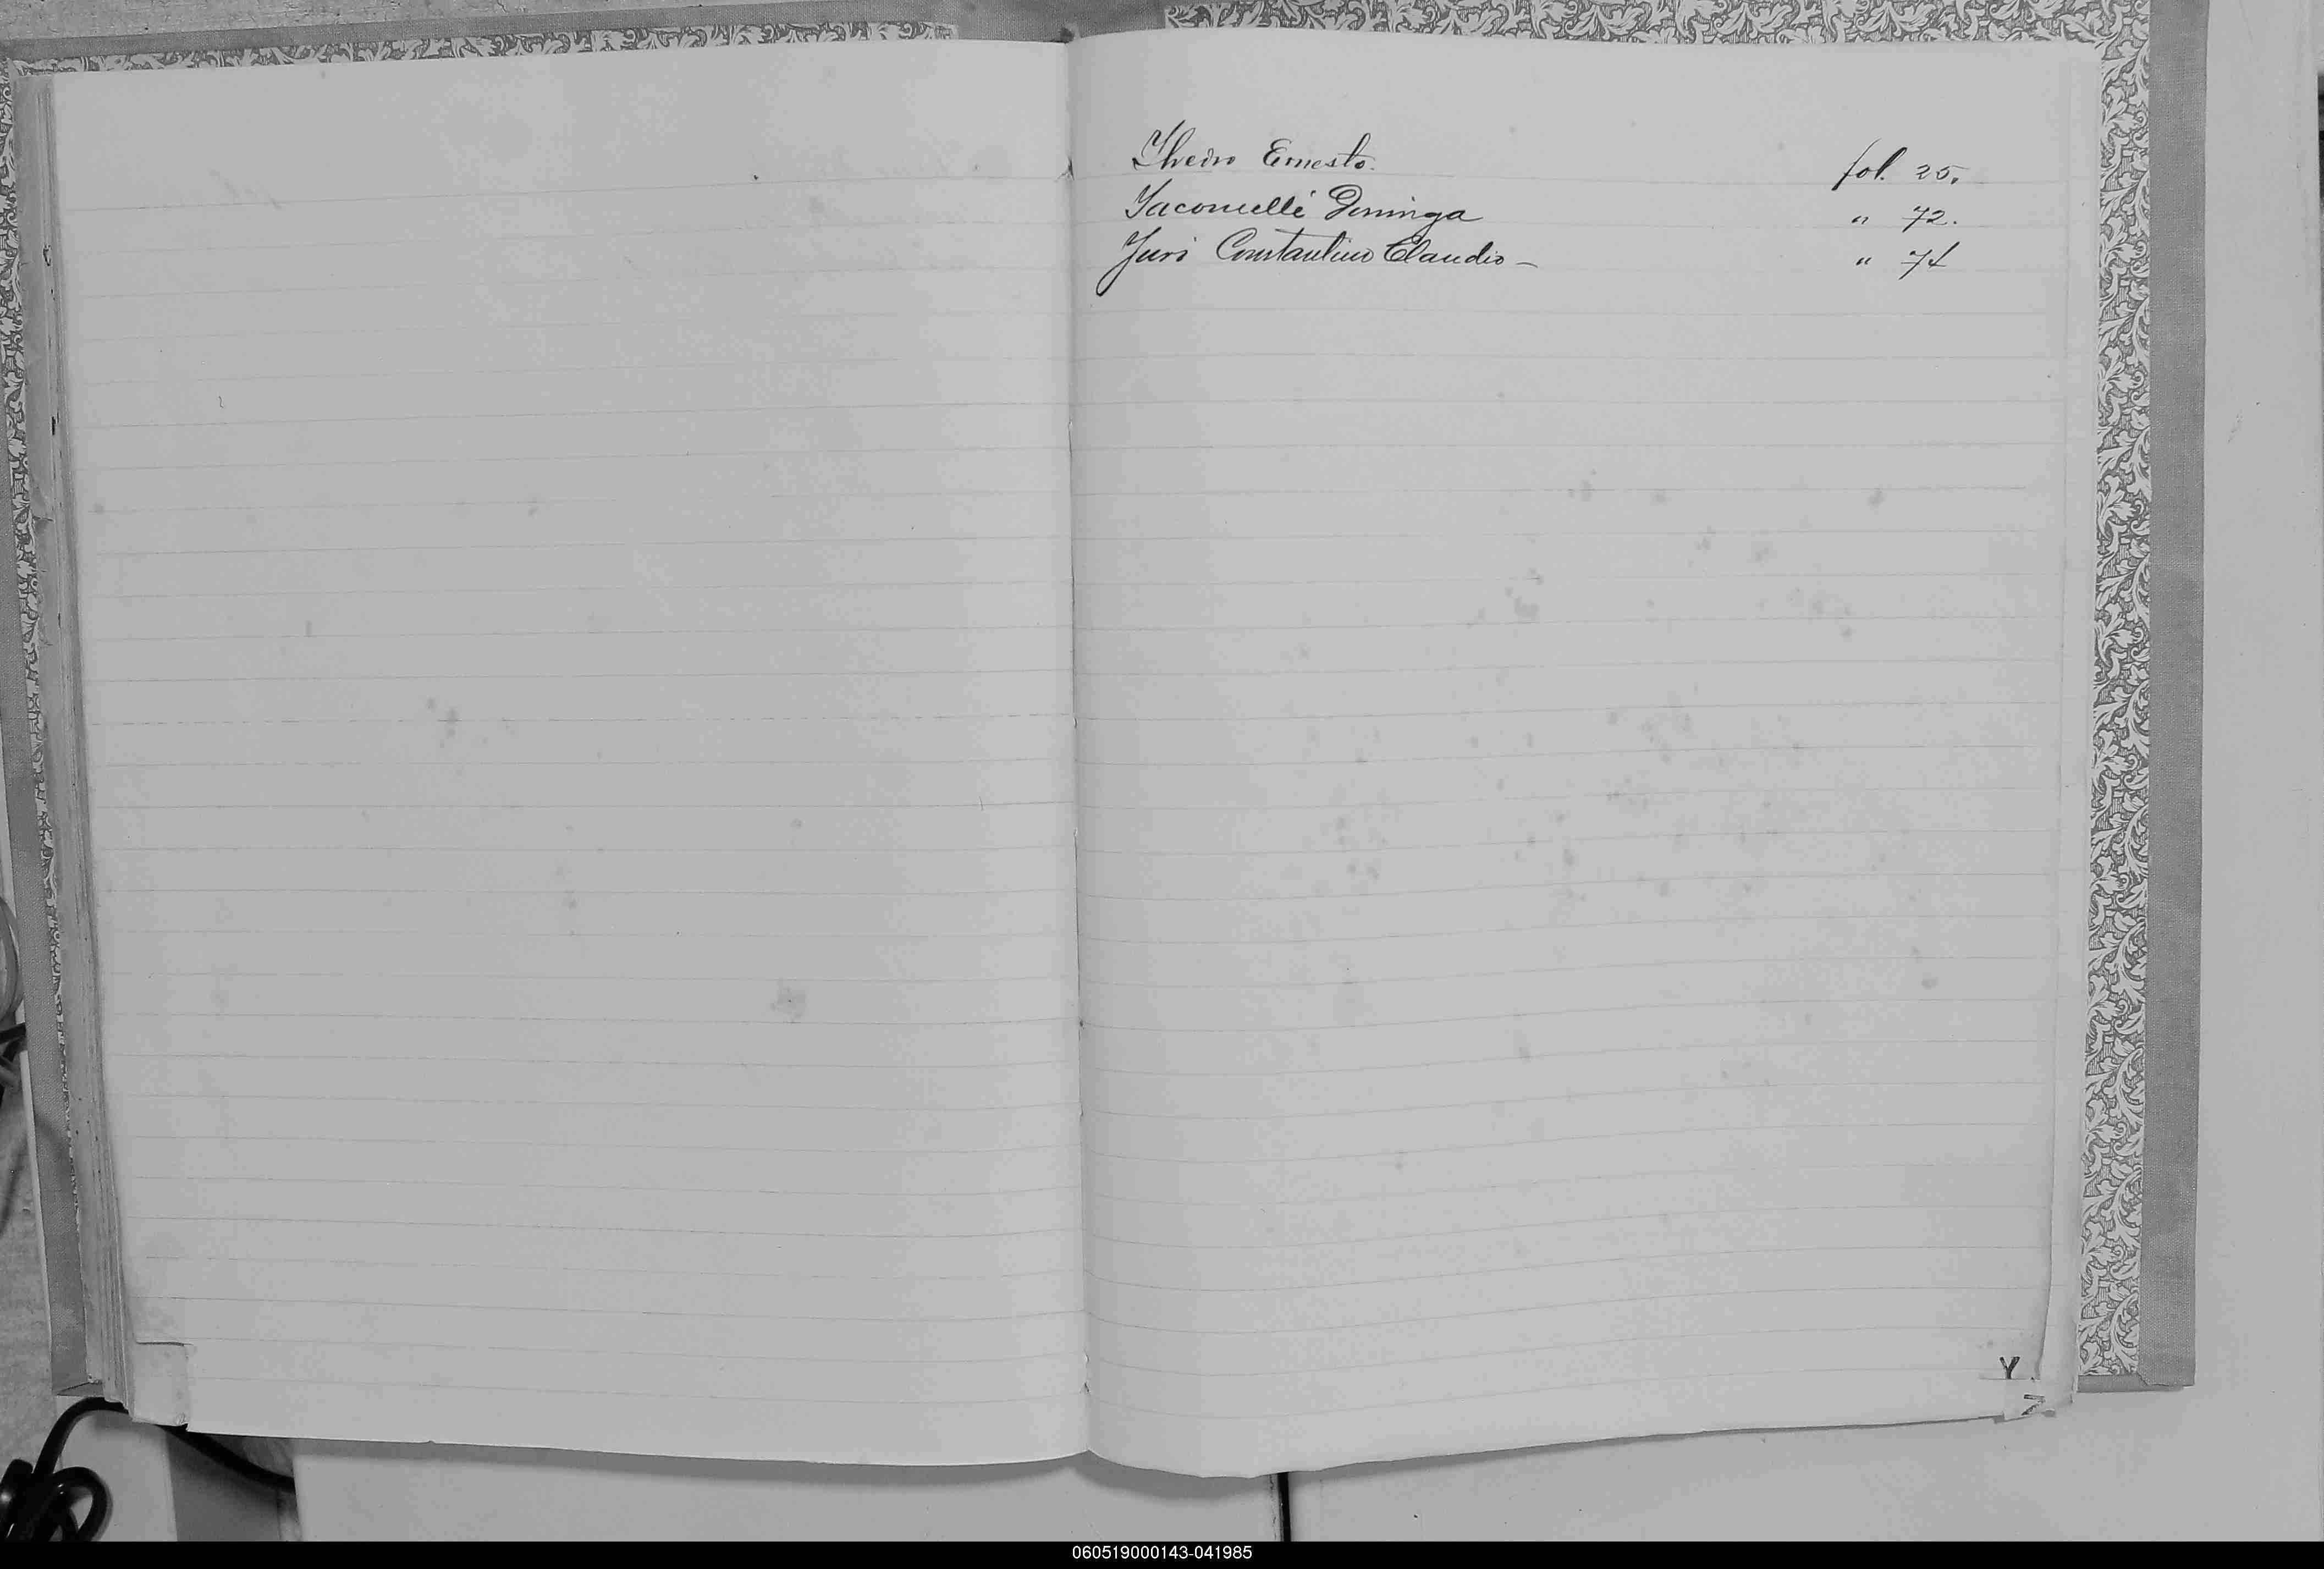 Ernesto. fol. 25.
Yacomelli Dominga " 72.
Yuri Constantino Claudio - " 74
Y
Z
060519000143-041985